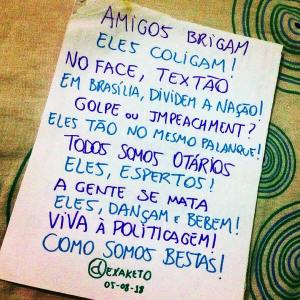 AMIGOS BRIGAM
ELES COLIGAM!
NO FACE, TEXTÃO
EM BRASÍLIA, DIVIDEM A NAÇÃO!
GOLPE OU IMPEACHMENT?
ELES TÃO NO MESMO PALANQUE!
TODOS SOMOS OTÁRIOS
ELES, ESPERTOS!
A GENTE SE MATA
ELES, DANÇAM E BEBEM!
VIVA À POLITICAGEM!
COMO SOMOS BESTAS!
@DEXAKETO
05-08-18